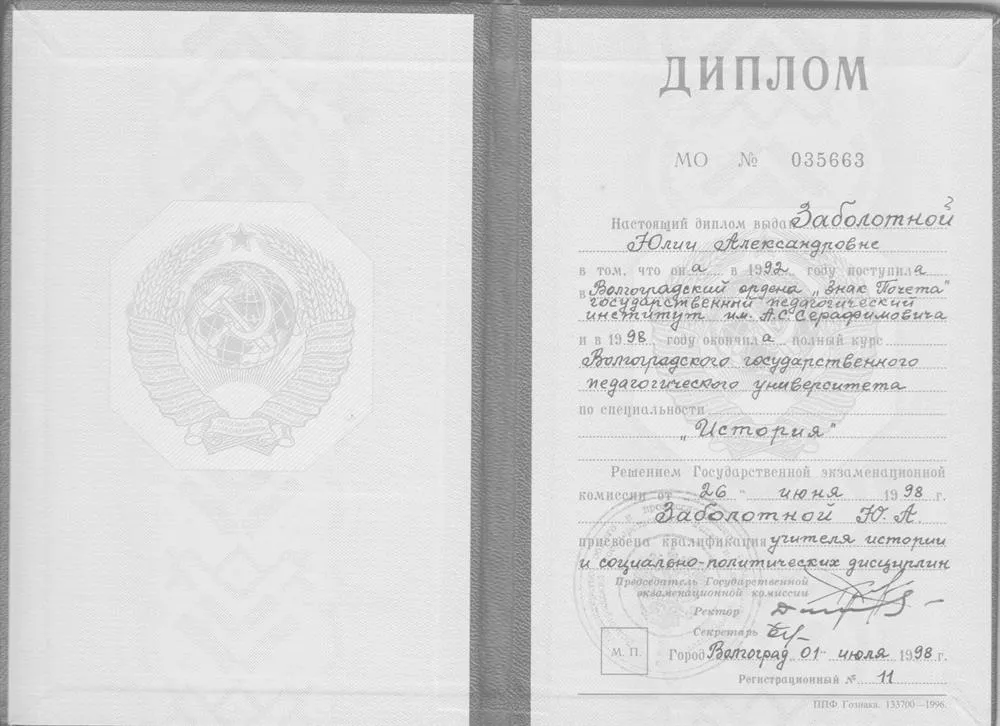 ДИПЛОМ
МО № 035663
Настоящий диплом выдан Заболотной
Юлии Александровне
в том, что она в 1992 году поступила
в Волгоградский ордена „Знак Почета"
государственный педагогический
институт им. А.С. Серафимовича
и в 1998 году окончила полный курс
Волгоградского государственного
педагогического университета
по специальности
„История"
Решением Государственной экзаменационной
комиссии от „26" июня 1998 г.
Заболотной Ю. А.
присвоена квалификация учителя истории
и социально-политических дисциплин
Председатель Государственной
экзаменационной комиссии
Ректор
Секретарь
М. П.
Город Волгоград „01" июля 1998 г.
Регистрационный № 11
ППФ Гознака. 133700—1996.